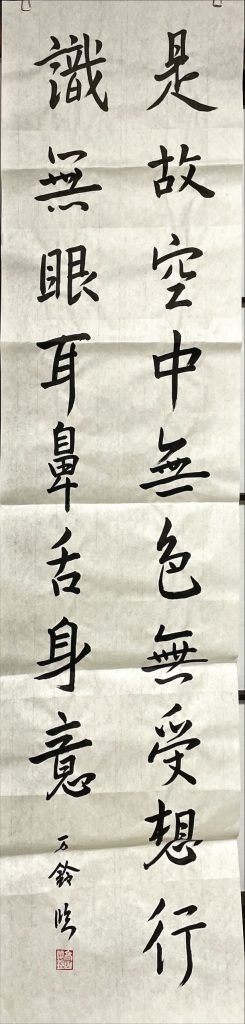 是故空中無色無受想行
識無眼耳鼻舌身意
万鈴臨